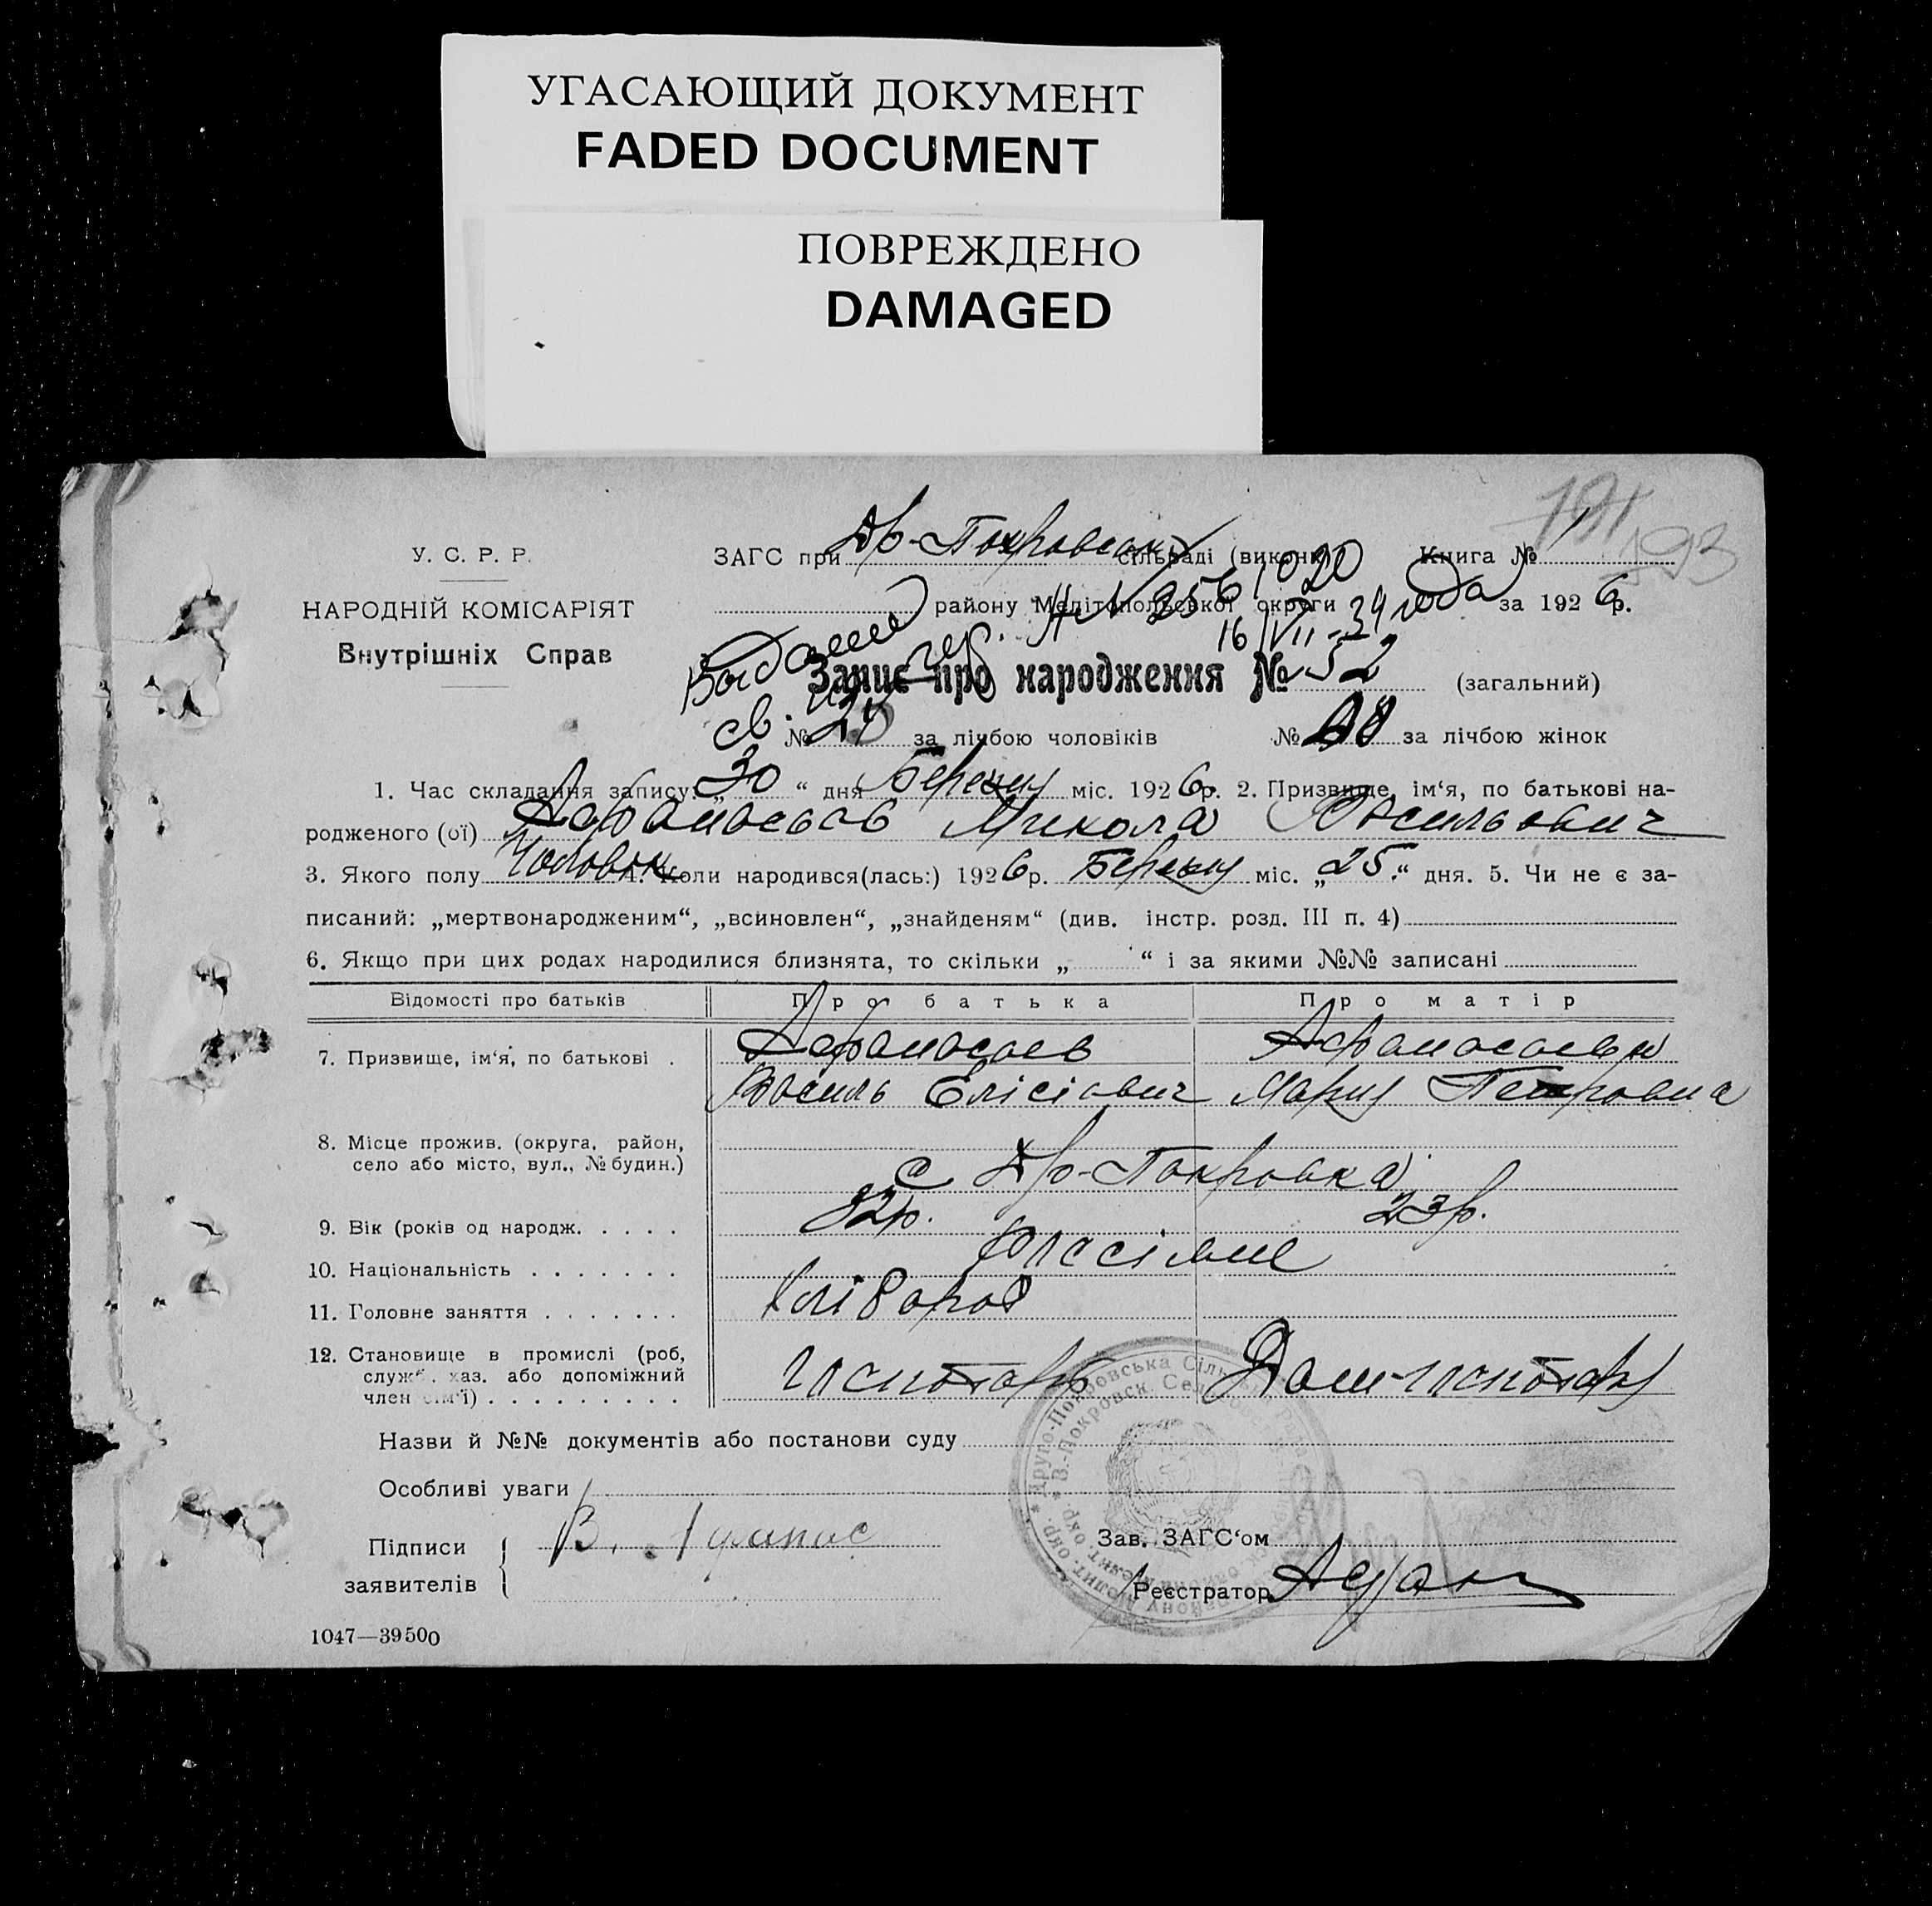 УГАСАЮЩИЙ ДОКУМЕНТ
FADED DOCUMENT
ПОВРЕЖДЕНО
DAMAGED
193
У. С. Р. Р.
ЗАГС при Др-Покровськ сільраді (викони) Книга № 1
НАРОДНІЙ КОМІСАРІЯТ
району Мелітопольської округи за 1926 р.
Внутрішніх Справ
Выдано
св.
16/VII-34 года
Запис про народження № 52 (загальний)
№ за лічбою чоловіків № за лічбою жінок
1. Час складання запису: „30“ дня Березня міс. 1926 р. 2. Призвище, ім‘я, по батькові на-
родженого (ої) Афанасьєв Микола Васильович
3. Якого полу Чоловік 4. Коли народився(лась:) 1926 р. Березня міс. „25.“ дня. 5. Чи не є за-
писаний: „мертвонародженим“, „всиновлен“, „знайденям“ (див. інстр. розд. III п. 4)
6. Якщо при цих родах народилися близнята, то скільки „ “ і за якими №№ записані
Відомості про батьків Про батька Про матір
7. Призвище, ім‘я, по батькові . Афанасаєв Афанасаєва
Василь Елісіович Мария Петровна
8. Місце прожив. (округа, район,
село або місто, вул., № будин.) с Др-Покровка
9. Вік (років од народж. . . . . 32р. 23р.
10. Національність . . . . . . .
11. Головне заняття . . . . . . . Хлібороб
12. Становище в промислі (роб,
служб. хаз. або допоміжний Господарь Дом-господар
член сім‘ї) . . . . . . . . .
Друго-Покровська Сільська Рада
В.-Покровск. Сел
Назви й №№ документів або постанови суду
Особливі уваги
Підписи В.
заявителів
Зав. ЗАГС‘ом
Реєстратор
1047—39500